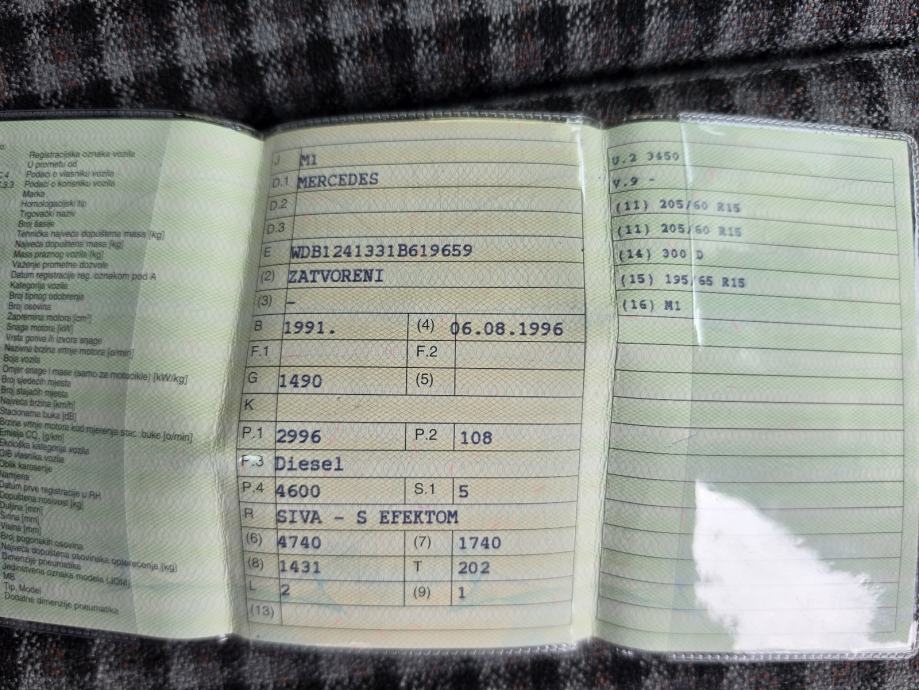 Registracijska oznaka vozila
U prometu od
C.4 Podaci o vlasniku vozila
C.3.3 Podaci o korisniku vozila
Marka
Homologacijski tip
Trgovački naziv
Broj šasije
Tehnička najveća dopuštena masa [kg]
Najveća dopuštena masa [kg]
Masa praznog vozila [kg]
Važenje prometne dozvole
Datum registracije reg. oznakom pod A
Kategorija vozila
Broj tipnog odobrenja
Broj osovina
Zapremina motora [cm³]
Snaga motora [kW]
Vrsta goriva ili izvora snage
Nazivna brzina vrtnje motora [o/min]
Boja vozila
Omjer snage i mase (samo za motocikle) [kW/kg]
Broj sjedećih mjesta
Broj stajaćih mjesta
Najveća brzina [km/h]
Stacionarna buka [dB]
Brzina vrtnje motora kod mjerenja stac. buke [o/min]
Emisija CO₂ [g/km]
Ekološka kategorija vozila
OIB vlasnika vozila
Oblik karoserije
Namjena
Datum prve registracije u RH
Dopuštena nosivost [kg]
Duljina [mm]
Širina [mm]
Visina [mm]
Broj pogonskih osovina
Najveća dopuštena osovinska opterećenja [kg]
Dimenzije pneumatika
Jedinstvena oznaka modela (JOM)
MB
Tip, Model
Dodatne dimenzije pneumatika
J M1
D.1 MERCEDES
D.2
D.3
E WDB1241331B619659
(2) ZATVORENI
(3) -
B 1991. (4) 06.08.1996
F.1 F.2
G 1490 (5)
K
P.1 2996 P.2 108
P.3 Diesel
P.4 4600 S.1 5
R SIVA - S EFEKTOM
(6) 4740 (7) 1740
(8) 1431 T 202
L 2 (9) 1
(13)
U.2 3450
V.9 -
(11) 205/60 R15
(11) 205/60 R15
(14) 300 D
(15) 195/65 R15
(16) M1